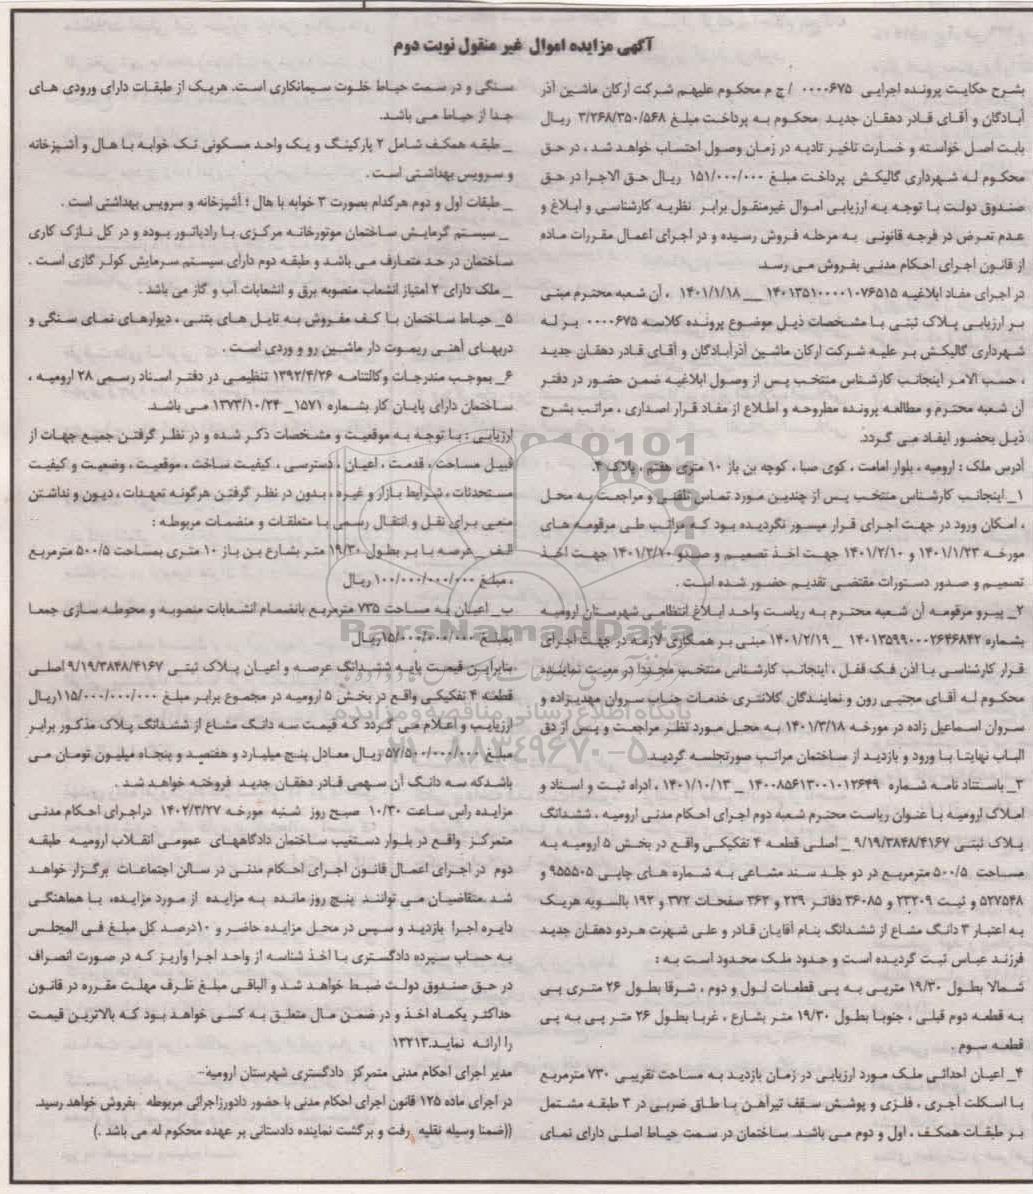 آگهی مزایده اموال غیر منقول نوبت دوم
بشرح حکایت پرونده اجرایی ۰۰۰۰۶۷۵ / ج م محکوم علیهم شرکت ارکان ماشین آذر
آبادگان و آقای قادر دهقان جدید محکوم به پرداخت مبلغ ۳/۲۶۸/۳۵۰/۵۶۸ ریال
بابت اصل خواسته و خسارت تاخیر تادیه در زمان وصول احتساب خواهد شد ، در حق
محکوم له شهرداری گالیکش پرداخت مبلغ ۱۵۱/۰۰۰/۰۰۰ ریال حق الاجرا در حق
صندوق دولت با توجه به ارزیابی اموال غیرمنقول برابر نظریه کارشناسی و ابلاغ و
عدم تعرض در فرجه قانونی به مرحله فروش رسیده و در اجرای اعمال مقررات ماده
از قانون اجرای احکام مدنی بفروش می رسد.
در اجرای مفاد ابلاغیه ۱۴۰۱۳۵۱۰۰۰۰۱۰۷۶۵۱۵ __ ۱۴۰۱/۱/۱۸ ، آن شعبه محترم مبنی
بر ارزیابی پلاک ثبتی با مشخصات ذیل موضوع پرونده کلاسه ۰۰۰۰۶۷۵ بر له
شهرداری گالیکش بر علیه شرکت ارکان ماشین آذرآبادگان و آقای قادر دهقان جدید
، حسب الامر اینجانب کارشناس منتخب پس از وصول ابلاغیه ضمن حضور در دفتر
آن شعبه محترم و مطالعه پرونده مطروحه و اطلاع از مفاد قرار اصداری ، مراتب بشرح
ذیل بحضور ایفاد می گردد.
آدرس ملک : ارومیه ، بلوار امامت ، کوی صبا ، کوچه بن باز ۱۰ متری هفتم ، پلاک ۴.
۱_ اینجانب کارشناس منتخب پس از چندین مورد تماس تلفنی و مراجعت به محل
، امکان ورود در جهت اجرای قرار میسور نگردیده بود که مراتب طی مرقومه های
مورخه ۱۴۰۱/۱/۲۳ و ۱۴۰۱/۲/۱۰ جهت اخذ تصمیم و صدور ۱۴۰۱/۲/۱۰ جهت اخذ
تصمیم و صدور دستورات مقتضی تقدیم حضور شده است .
۲_ پیرو مرقومه آن شعبه محترم به ریاست واحد ابلاغ انتظامی شهرستان ارومیه
بشماره ۱۴۰۱۳۵۹۹۰۰۰۲۶۴۶۸۴۲ _ ۱۴۰۱/۲/۱۹ مبنی بر همکاری لازمه در جهت اجرای
قرار کارشناسی با اذن فک قفل ، اینجانب کارشناس منتخب مجددا در معیت نماینده
محکوم له آقای مجتبی رون و نمایندگان کلانتری خدمات جناب سروان مهدیزاده و
سروان اسماعیل زاده در مورخه ۱۴۰۱/۳/۱۸ به محل مورد نظر مراجعت و پس از دق
الباب نهایتا با ورود و بازدید از ساختمان مراتب صورتجلسه گردید.
۳_ باستناد نامه شماره ۱۴۰۰۸۵۶۱۳۰۰۱۰۱۲۶۴۹ _ ۱۴۰۱/۱۰/۱۳ ، اداره ثبت و اسناد و
املاک ارومیه با عنوان ریاست محترم شعبه دوم اجرای احکام مدنی ارومیه ، ششدانگ
پلاک ثبتی ۹/۱۹/۳۸۴۸/۴۱۶۷ _ اصلی قطعه ۴ تفکیکی واقع در بخش ۵ ارومیه به
مساحت ۵۰۰/۵ مترمربع در دو جلد سند مشاعی به شماره های چاپی ۹۵۵۵۰۵ و
۵۲۷۵۴۸ و ثبت ۲۳۲۰۹ و ۳۶۰۸۵ دفاتر ۲۲۹ و ۳۶۲ صفحات ۳۷۲ و ۱۹۲ بالسویه هریک
به اعتبار ۳ دانگ مشاع از ششدانگ بنام آقایان قادر و علی شهرت هردو دهقان جدید
فرزند عباس ثبت گردیده است و حدود ملک محدود است به :
شمالا بطول ۱۹/۳۰ متریی به پی قطعات لول و دوم ، شرقا بطول ۲۶ متری پی
به قطعه دوم قبلی ، جنوبا بطول ۱۹/۳۰ متر بشارع ، غربا بطول ۲۶ متر پی به پی
قطعه سوم .
۴_ اعیان احداثی ملک مورد ارزیابی در زمان بازدید به مساحت تقریبی ۷۳۰ مترمربع
با اسکلت آجری ، فلزی و پوشش سقف تیرآهن با طاق ضربی در ۳ طبقه مشتمل
بر طبقات همکف ، اول و دوم می باشد. ساختمان در سمت حیاط اصلی دارای نمای
سنگی و در سمت حیاط خلوت سیمانکاری است. هریک از طبقات دارای ورودی های
جدا از حیاط می باشد.
_ طبقه همکف شامل ۲ پارکینگ و یک واحد مسکونی تک خوابه با هال و آشپزخانه
و سرویس بهداشتی است .
_ طبقات اول و دوم هرکدام بصورت ۳ خوابه با هال ؛ آشپزخانه و سرویس بهداشتی است .
_ سیستم گرمایش ساختمان موتورخانه مرکزی با رادیاتور بوده و در کل نازک کاری
ساختمان در حد متعارف می باشد و طبقه دوم دارای سیستم سرمایش کولر گازی است .
_ ملک دارای ۲ امتیاز انشعاب منصوبه برق و انشعابات آب و گاز می باشد .
۵_ حیاط ساختمان با کف مفروش به تایل های بتنی ، دیوارهای نمای سنگی و
دربهای آهنی ریموت دار ماشین رو و وردی است .
۶_ بموجب مندرجات وکالتنامه ۱۳۹۲/۴/۲۶ تنظیمی در دفتر اسناد رسمی ۲۸ ارومیه ،
ساختمان دارای پایان کار بشماره ۱۵۷۱_ ۱۳۷۳/۱۰/۲۴ می باشد.
ارزیابی : با توجه به موقعیت و مشخصات ذکر شده و در نظر گرفتن جمیع جهات از
قبیل مساحت ، قدمت ، اعیان ، دسترسی ، کیفیت ساخت ، موقعیت ، وضعیت و کیفیت
مستحدثات ، شرایط بازار و غیره ، بدون در نظر گرفتن هرگونه تعهدات ، دیون و نداشتن
منعی برای نقل و انتقال رسمی با متعلقات و منضمات مربوطه :
الف _عرصه با بر بطول ۱۹/۳۰ متر بشارع بن باز ۱۰ متری بمساحت ۵۰۰/۵ مترمربع
، مبلغ ۱۰۰/۰۰۰/۰۰۰/۰۰۰ ریال
ب_ اعیان به مساحت ۷۳۵ مترمربع بانضمام انشعابات منصوبه و محوطه سازی جمعا
بمبلغ ۱۵/۰۰۰/۰۰۰/۰۰۰ریال
بنابراین قیمت پایه ششدانگ عرصه و اعیان پلاک ثبتی ۹/۱۹/۳۸۴۸/۴۱۶۷اصلی
قطعه ۴ تفکیکی واقع در بخش ۵ ارومیه در مجموع برابر مبلغ ۱۱۵/۰۰۰/۰۰۰/۰۰۰ریال
ارزیابی و اعلام می گردد که قیمت سه دانگ مشاع از ششدانگ پلاک مذکور برابر
مبلغ ۵۷/۵۰۰/۰۰۰/۰۰۰ ریال معادل پنج میلیارد و هفتصد و پنجاه میلیون تومان می
باشدکه سه دانگ آن سهمی قادر دهقان جدید فروخته خواهد شد .
مزایده راس ساعت ۱۰/۳۰ صبح روز شنبه مورخه ۱۴۰۲/۳/۲۷ دراجرای احکام مدنی
متمرکز واقع در بلوار دستغیب ساختمان دادگاههای عمومی انقلاب ارومیه طبقه
دوم در اجرای اعمال قانون اجرای احکام مدنی در سالن اجتماعات برگزار خواهد
شد .متقاضیان می توانند پنج روز مانده به مزایده از مورد مزایده، با هماهنگی
دایره اجرا بازدید و سپس در محل مزایده حاضر و ۱۰درصد کل مبلغ فی المجلس
به حساب سپرده دادگستری با اخذ شناسه از واحد اجرا واریز که در صورت انصراف
در حق صندوق دولت ضبط خواهد شد و الباقی مبلغ ظرف مهلت مقرره در قانون
حداکثر یکماه اخذ و در ضمن مال متعلق به کسی خواهد بود که بالاترین قیمت
را ارائه نماید.۱۳۲۱۳
مدیر اجرای احکام مدنی متمرکز دادگستری شهرستان ارومیه-
در اجرای ماده ۱۲۵ قانون اجرای احکام مدنی با حضور دادورزاجرائی مربوطه بفروش خواهد رسید.
((ضمنا وسیله نقلیه رفت و برگشت نماینده دادستانی بر عهده محکوم له می باشد .)
ParsNamadData
پایگاه اطلاع رسانی مناقصه و مزایده
۰۲۱-۸۸۳۴۹۶۷۰-۵